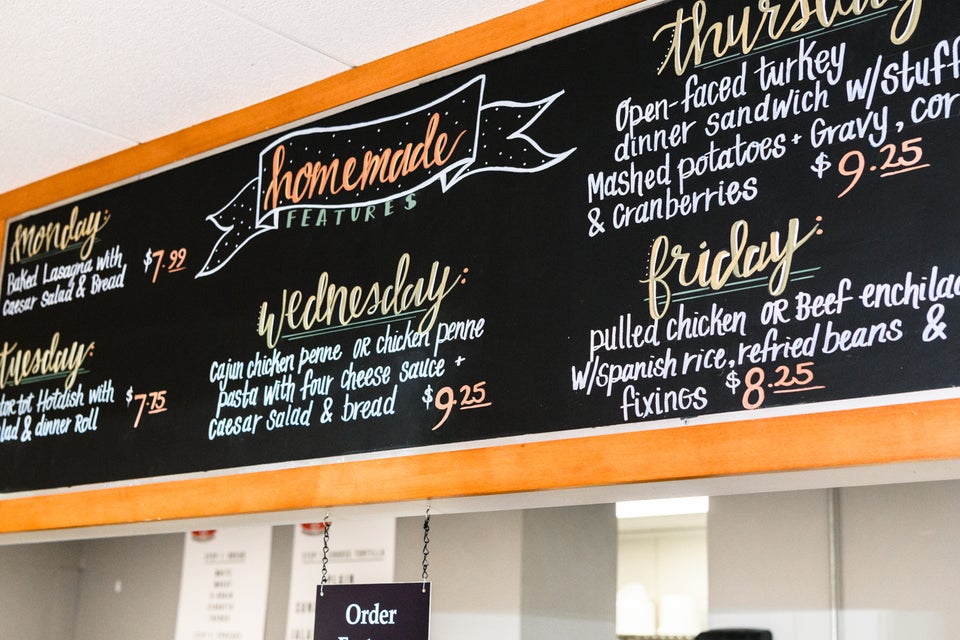 homemade
FEATURES
monday:
Baked Lasagna with
Caesar Salad & Bread
$7.99
tuesday:
Hotdish with
& dinner Roll
$7.75
wednesday:
Cajun chicken penne OR chicken penne
pasta with four cheese sauce +
Caesar Salad & bread
$9.25
thursday
Open-faced turkey
dinner sandwich w/stuff
Mashed potatoes + Gravy, cor
& Cranberries
$9.25
friday:
pulled chicken OR Beef enchila
w/Spanish rice, refried beans &
fixings
$8.25
Order